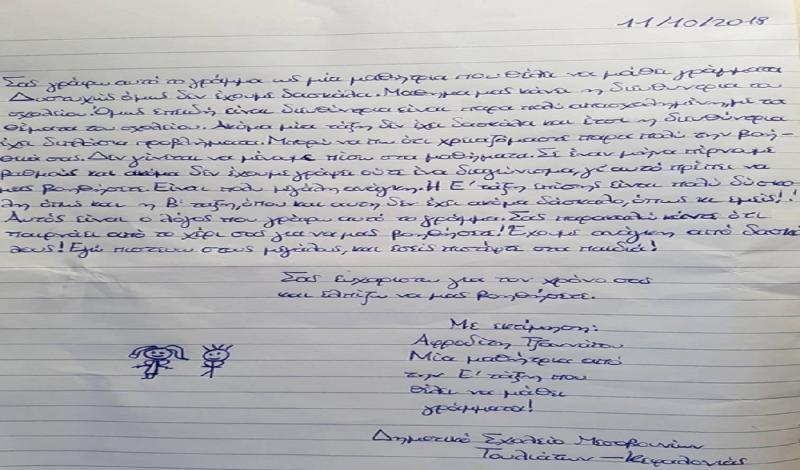 11/10/2018
Σας γράφω αυτό το γράμμα ως μία μαθήτρια που θέλει να μάθει γράμματα
Δυστυχώς όμως δεν έχουμε δασκάλα. Μάθημα μας κάνει η διευθύντρια του
σχολείου. Όμως επειδή είναι διευθύντρια είναι πάρα πολύ απασχολημένη με τα
θέματα του σχολείου. Ακόμα μία τάξη δεν έχει δασκάλα και έτσι η διευθύντρια
έχει διπλάσια προβλήματα. Μπορώ να πω ότι χρειαζόμαστε πάρα πολύ την βοή-
θειά σας. Δεν γίνεται να μείνουμε πίσω στα μαθήματα. Σε έναν μήνα παίρνουμε
βαθμούς και ακόμα δεν έχουμε γράψει ούτε ένα διαγώνισμα, γι' αυτό πρέπει να
μας βοηθήσετε. Είναι πολύ μεγάλη ανάγκη. Η Ε' τάξη επίσης είναι πολύ δύσκο-
λη όπως και η Β' τάξη, όπου και αυτή δεν έχει ακόμα δάσκαλο, όπως κι εμείς!!
Αυτός είναι ο λόγος που γράφω αυτό το γράμμα. Σας παρακαλώ κάντε ότι
περνάει από το χέρι σας για να μας βοηθήσετε! Έχουμε ανάγκη από δασκά-
λους! Εγώ πιστεύω στους μεγάλους, και εσείς πιστέψτε στα παιδιά!
Σας ευχαριστώ για τον χρόνο σας
και ελπίζω να μας βοηθήσετε.
Με εκτίμηση:
Αφροδίτη Τζαννάτου
Μία μαθήτρια από
την Ε' τάξη που
θέλει να μάθει
γράμματα!
Δημοτικό Σχολείο Μεσοβουνίων
Τουλιάτων - Κεφαλονιάς